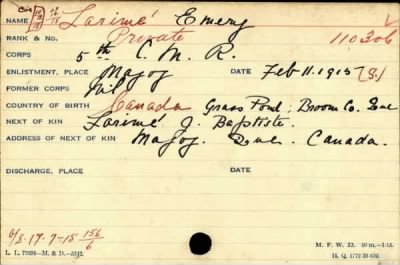 NAME Larimé Emery
RANK & No. Private 110306
CORPS 5th C. M. R.
ENLISTMENT, PLACE Magog DATE Feb 11. 1915
FORMER CORPS Nil
COUNTRY OF BIRTH Canada Grass Pond; Broom Co. Que
NEXT OF KIN Larimé J. Baptiste.
ADDRESS OF NEXT OF KIN Magog. Que. Canada.
DISCHARGE, PLACE DATE
17-7-15 156/6
M. F. W. 22.